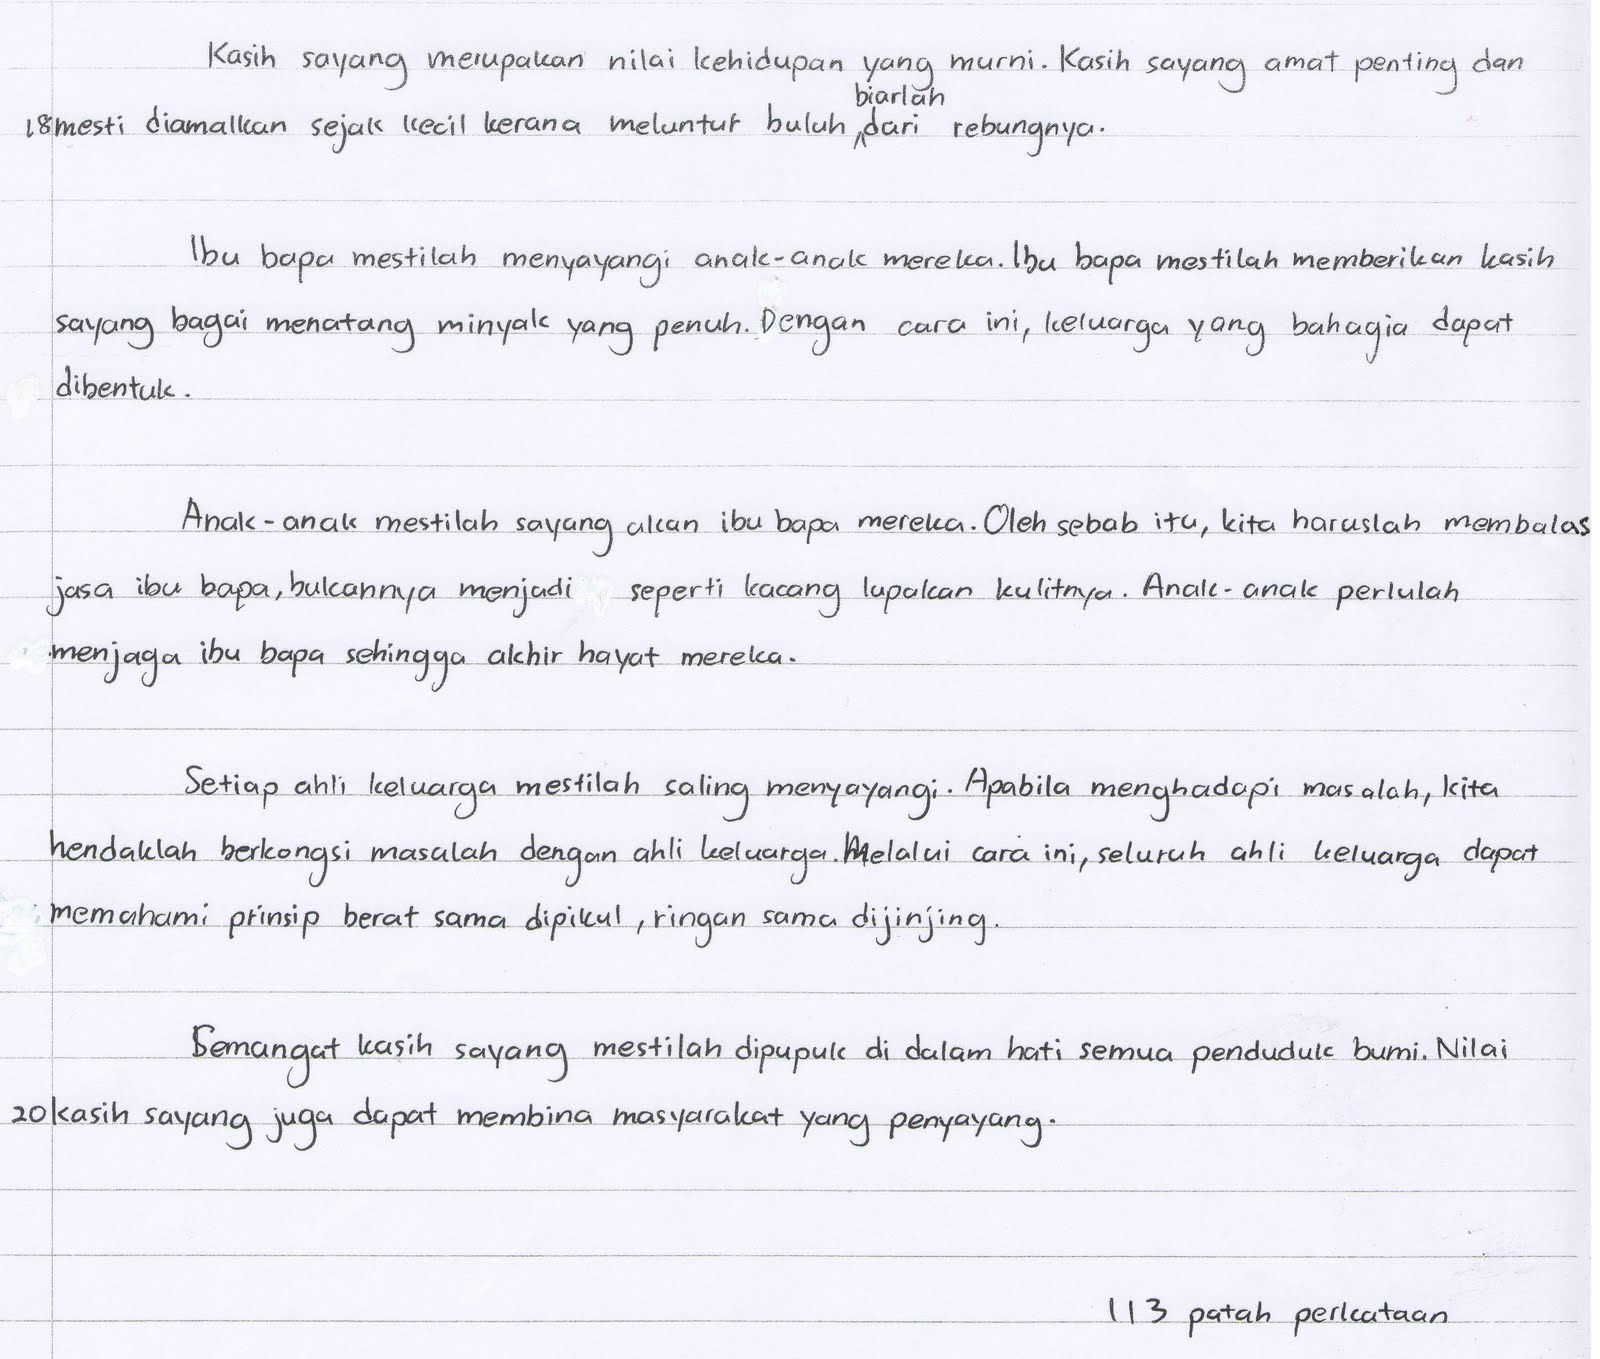 Kasih sayang merupakan nilai kehidupan yang murni. Kasih sayang amat penting dan
biarlah
18 mesti diamalkan sejak kecil kerana meluntur buluh dari rebungnya.
Ibu bapa mestilah menyayangi anak-anak mereka. Ibu bapa mestilah memberikan kasih
sayang bagai menatang minyak yang penuh. Dengan cara ini, keluarga yang bahagia dapat
dibentuk.
Anak-anak mestilah sayang akan ibu bapa mereka. Oleh sebab itu, kita haruslah membalas
jasa ibu bapa, bukannya menjadi seperti kacang lupakan kulitnya. Anak-anak perlulah
menjaga ibu bapa sehingga akhir hayat mereka.
Setiap ahli keluarga mestilah saling menyayangi. Apabila menghadapi masalah, kita
hendaklah berkongsi masalah dengan ahli keluarga. Melalui cara ini, seluruh ahli keluarga dapat
memahami prinsip berat sama dipikul, ringan sama dijinjing.
Semangat kasih sayang mestilah dipupuk di dalam hati semua penduduk bumi. Nilai
20 kasih sayang juga dapat membina masyarakat yang penyayang.
113 patah perkataan